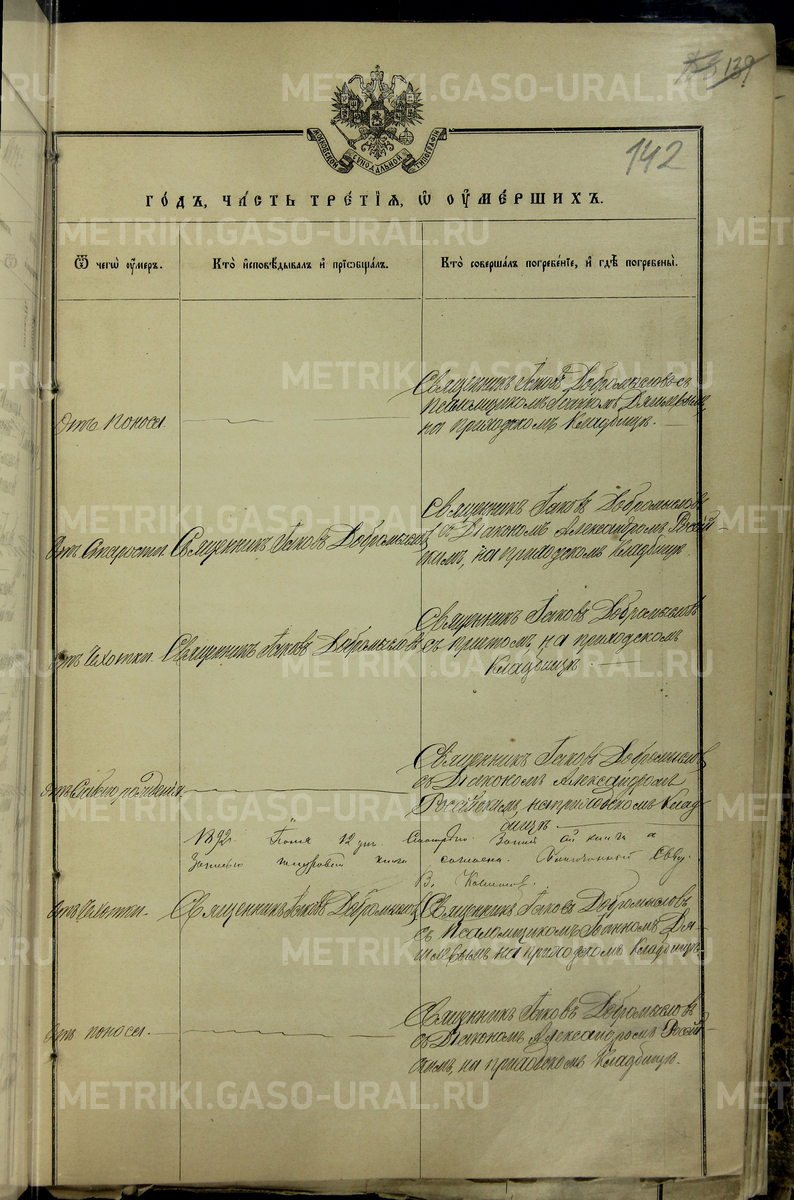 139
142
МОСКОВСКОЙ СѴНОДАЛЬНОЙ ТИПОГРАФІИ
ГОДЪ, ЧАСТЬ ТРЕТІѦ, Ѡ ОУМЕРШИХЪ.
Ѿ чегѡ оумеръ.
Кто исповѣдывалъ и пріѡбщалъ.
Кто совершалъ погребеніе, и гдѣ погребены.
Отъ поноса
Священникъ Іаковъ Добромысловъ съ
псаломщикомъ Іоанномъ
на приходскомъ кладбищѣ.
Отъ старости
Священникъ Іаковъ Добромысловъ
Священникъ Іаковъ Добромысловъ
съ Діакономъ Александромъ Россій-
скимъ, на приходскомъ кладбищѣ.
Отъ чахотки
Священникъ Іаковъ Добромысловъ
Священникъ Іаковъ Добромысловъ
съ причтомъ, на приходскомъ
кладбищѣ.
Отъ слабаго рожденія
Священникъ Іаковъ Добромысловъ
съ Діакономъ Александромъ
Россійскимъ, на приходскомъ клад-
бищѣ
1892г. Іюня 12 дня
согласна.
Отъ чахотки.
Священникъ Іаковъ Добромысловъ
Священникъ Іаковъ Добромысловъ
съ Псаломщикомъ Іоанномъ
на приходскомъ кладбищѣ
Отъ поноса.
Священникъ Іаковъ Добромысловъ
съ Діакономъ Александромъ Россій-
скимъ, на приходскомъ кладбищѣ.
METRIKI.GASO-URAL.RU